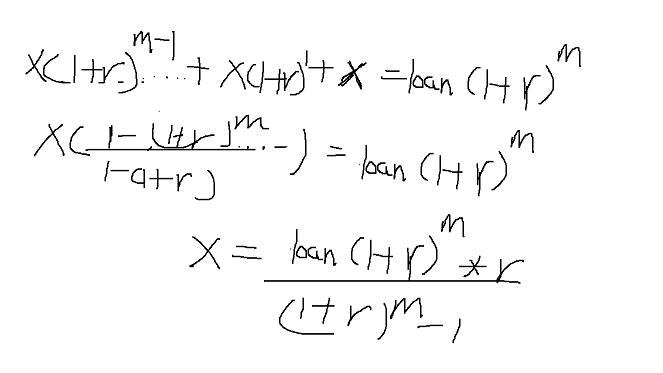 x(1+r)^{m-1} ..... + x(1+r)^1 + x = loan (1+r)^m
x( \frac{1-(1+r)^m....}{1-(1+r)} -) = loan (1+r)^m
x = \frac{loan (1+r)^m * r}{(1+r)^m - 1}